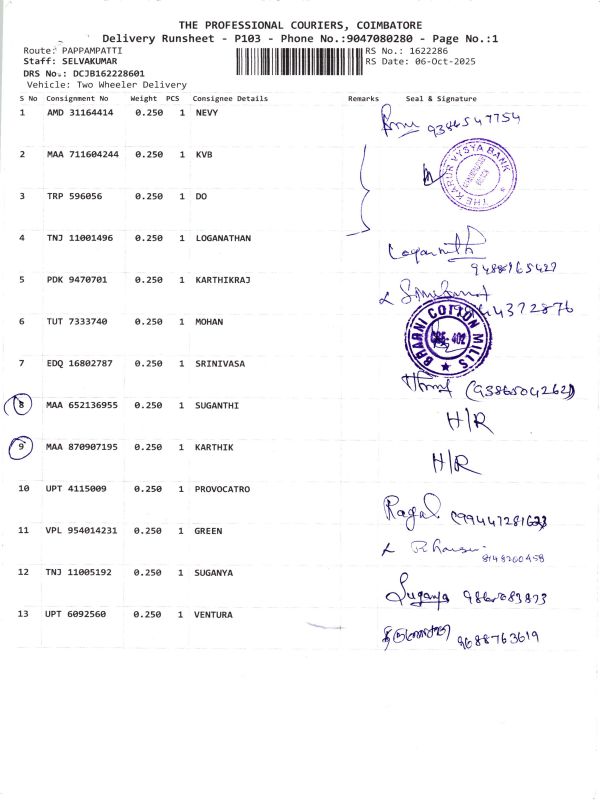 THE PROFESSIONAL COURIERS, COIMBATORE
Delivery Runsheet - P103 - Phone No.:9047080280 - Page No.:1
Route: PAPPAMPATTI RS No.: 1622286
Staff: SELVAKUMAR RS Date: 06-Oct-2025
DRS No.: DCJB162228601
Vehicle: Two Wheeler Delivery
S No Consignment No Weight PCS Consignee Details Remarks Seal & Signature
1 AMD 31164414 0.250 1 NEVY
2 MAA 711604244 0.250 1 KVB THE KARUR VYSYA BANK
3 TRP 596056 0.250 1 DO
4 TNJ 11001496 0.250 1 LOGANATHAN
5 PDK 9470701 0.250 1 KARTHIKRAJ
6 TUT 7333740 0.250 1 MOHAN BHARNI COTTON MILLS
7 EDQ 16802787 0.250 1 SRINIVASA
8 MAA 652136955 0.250 1 SUGANTHI H/R
9 MAA 870907195 0.250 1 KARTHIK H/R
10 UPT 4115009 0.250 1 PROVOCATRO Ragal
11 VPL 954014231 0.250 1 GREEN 8148260458
12 TNJ 11005192 0.250 1 SUGANYA Suganya
13 UPT 6092560 0.250 1 VENTURA 9688763619